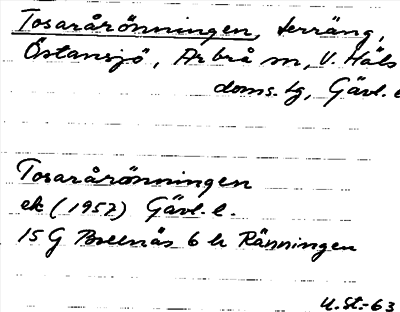 Tosarårönningen, terräng,
Östansjö, Arbrå sn, V. Häls
doms. lg, Gävl. l
Tosarårönningen
ek (1957) Gävl. l.
15 G Bollnäs 6 h Ränningen
U.St.-63